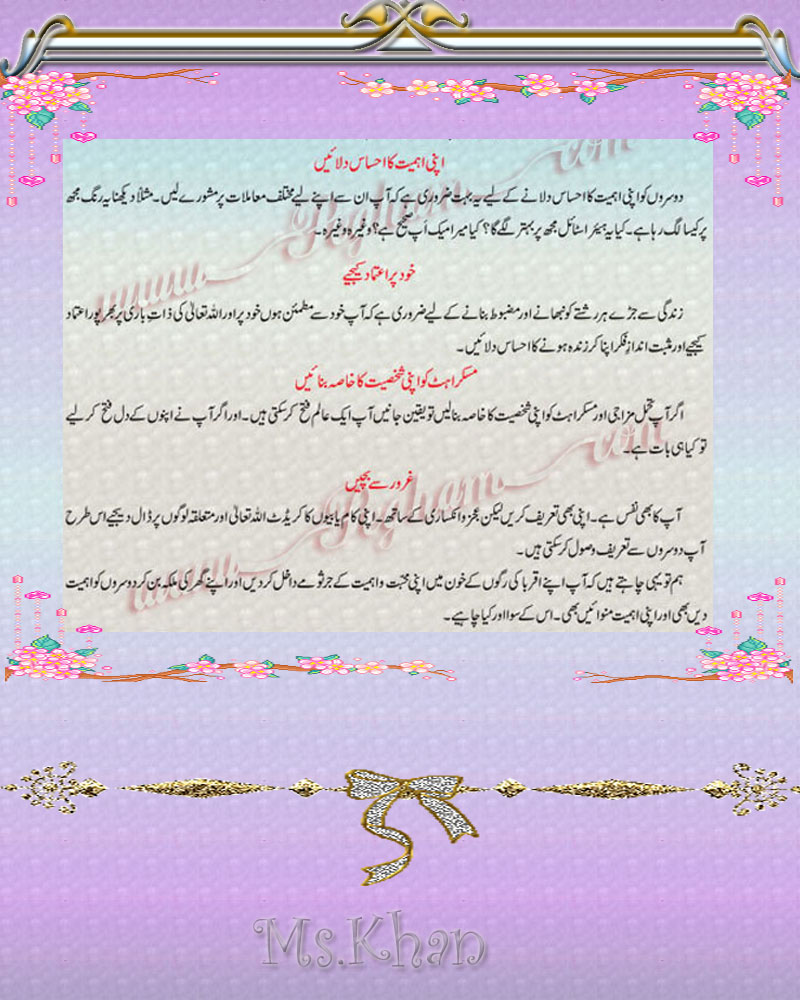 اپنی اہمیت کا احساس دلائیں
دوسروں کو اپنی اہمیت کا احساس دلانے کے لیے یہ بہت ضروری ہے کہ آپ ان سے اپنے لیے مختلف معاملات پر مشورے لیں۔ مثلاً دیکھنا یہ رنگ مجھ
پر کیسا لگ رہا ہے۔ کیا یہ ہیئر اسٹائل مجھ پر بہتر لگے گا؟ کیا میرا میک اَپ صحیح ہے؟ وغیرہ وغیرہ۔
خود پر اعتماد کیجیے
زندگی سے جڑے ہر رشتے کو نبھانے اور مضبوط بنانے کے لیے ضروری ہے کہ آپ خود سے مطمئن ہوں خود پر اور اللہ تعالیٰ کی ذاتِ باری پر بھرپور اعتماد
کیجیے اور مثبت اندازِ فکر اپنا کر زندہ ہونے کا احساس دلائیں۔
مسکراہٹ کو اپنی شخصیت کا خاصہ بنائیں
اگر آپ تحمل مزاجی اور مسکراہٹ کو اپنی شخصیت کا خاصہ بنا لیں تو یقین جانیں آپ ایک عالم فتح کر سکتی ہیں۔ اور اگر آپ نے اپنوں کے دل فتح کر لیے
تو کیا ہی بات ہے۔
غرور سے بچیں
آپ کا بھی نفس ہے۔ اپنی بھی تعریف کریں لیکن عجز و انکساری کے ساتھ۔ اپنی کام یابیوں کا کریڈٹ اللہ تعالیٰ اور متعلقہ لوگوں پر ڈال دیجیے اس طرح
آپ دوسروں سے تعریف وصول کر سکتی ہیں۔
ہم تو یہی چاہتے ہیں کہ آپ اپنے اقربا کی رگوں کے خون میں اپنی محبت و اہمیت کے جرثومے داخل کر دیں اور اپنے گھر کی ملکہ بن کر دوسروں کو اہمیت
دیں بھی اور اپنی اہمیت منوائیں بھی۔ اس کے سوا اور کیا چاہیے۔
www.Pegham.com
www.Pegham.com
Ms.Khan